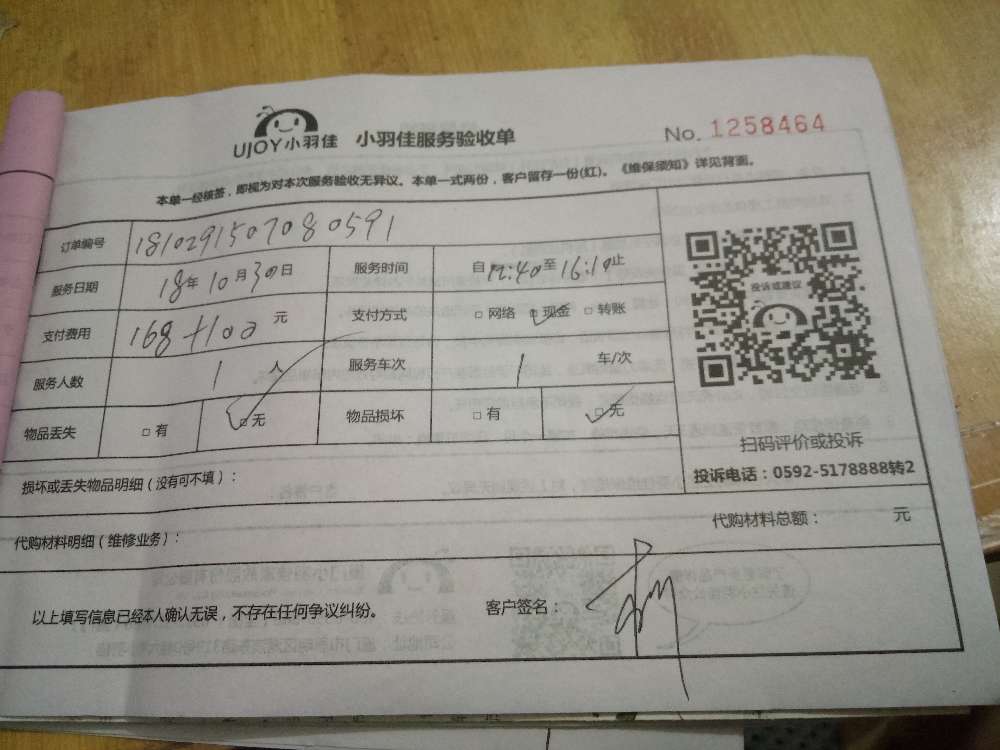 UJOY小羽佳 小羽佳服务验收单 No. 1258464
本单一经核签，即视为对本次服务验收无异议。本单一式两份，客户留存一份(红)。《维保须知》详见背面。
订单编号 181029150708 0591
服务日期 18年10月30日 服务时间 自12:40至16:10止
支付费用 168+100 元 支付方式 □网络 □现金 □转账
服务人数 1 人 服务车次 1 车/次
物品丢失 □有 □无 物品损坏 □有 □无
投诉或建议
扫码评价或投诉
投诉电话：0592-5178888转2
损坏或丢失物品明细（没有可不填）：
代购材料明细（维修业务）： 代购材料总额： 元
以上填写信息已经本人确认无误，不存在任何争议纠纷。 客户签名：